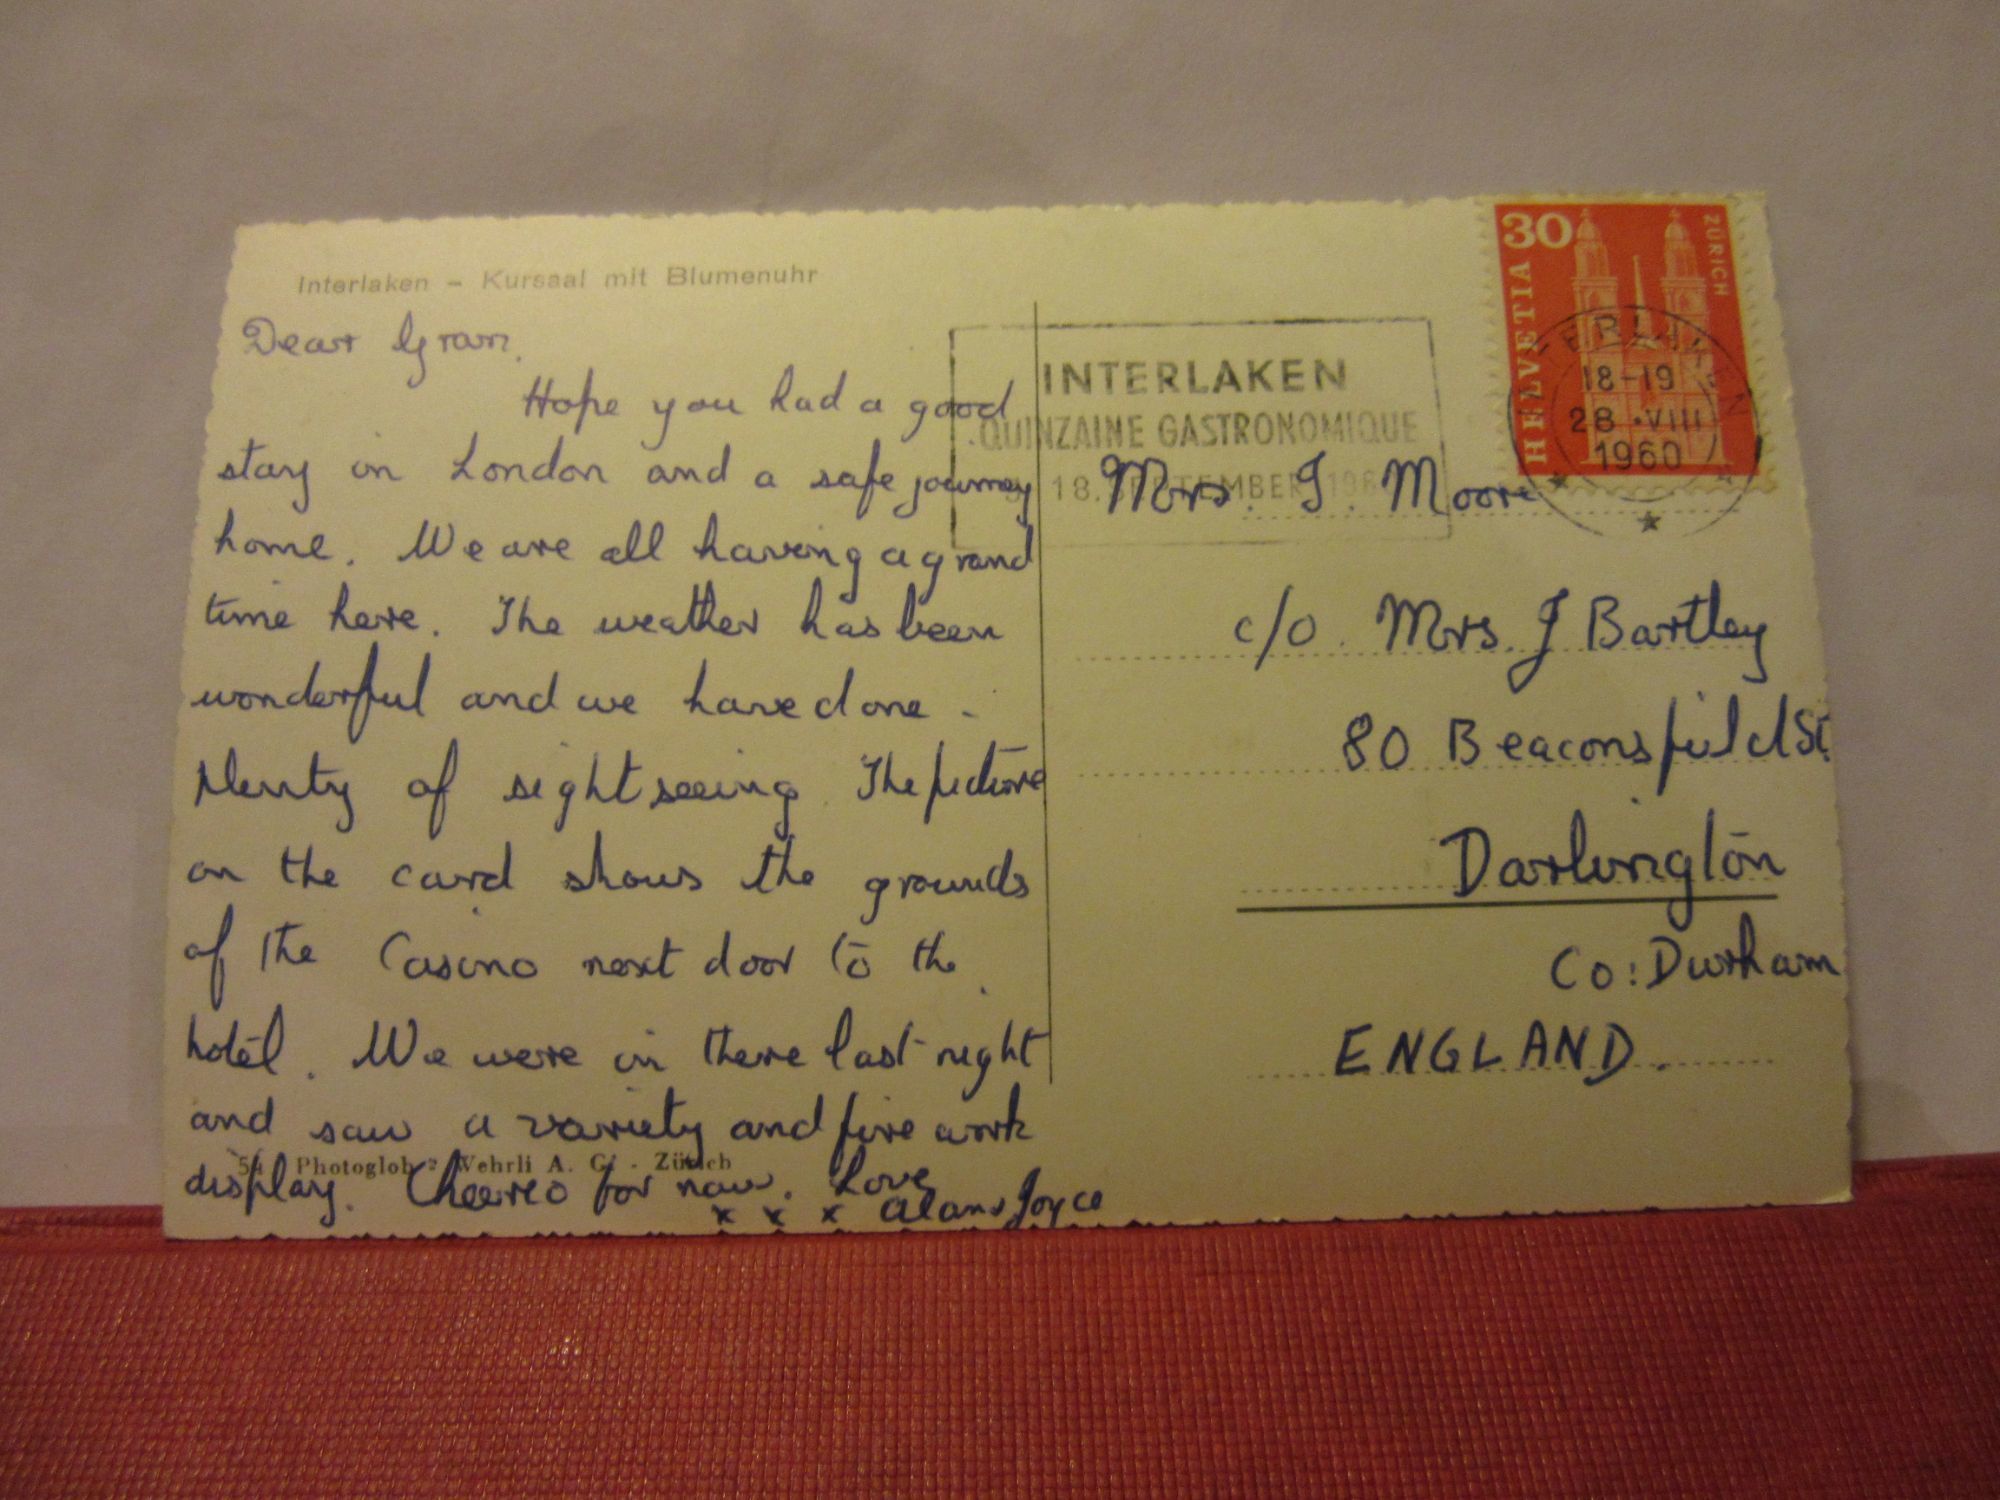 Interlaken – Kursaal mit Blumenuhr
Dear Gran,
Hope you had a good
stay in London and a safe journey
home. We are all having a grand
time here. The weather has been
wonderful and we have done -
plenty of sight seeing. The picture
on the card shows the grounds
of the Casino next door to the
hotel. We were in there last night
and saw a variety and fire work
display. Cheerio for now. Love
x x x Alan & Joyce
Photoglob Wehrli A. G. - Zürich
INTERLAKEN
QUINZAINE GASTRONOMIQUE
18. SEPTEMBER
30
HELVETIA
ZÜRICH
INTERLAKEN
18-19
28.VIII
1960
Mrs. I. Moore
c/o. Mrs. J Bartley
80 Beaconsfield St.
Darlington
Co: Durham
ENGLAND.